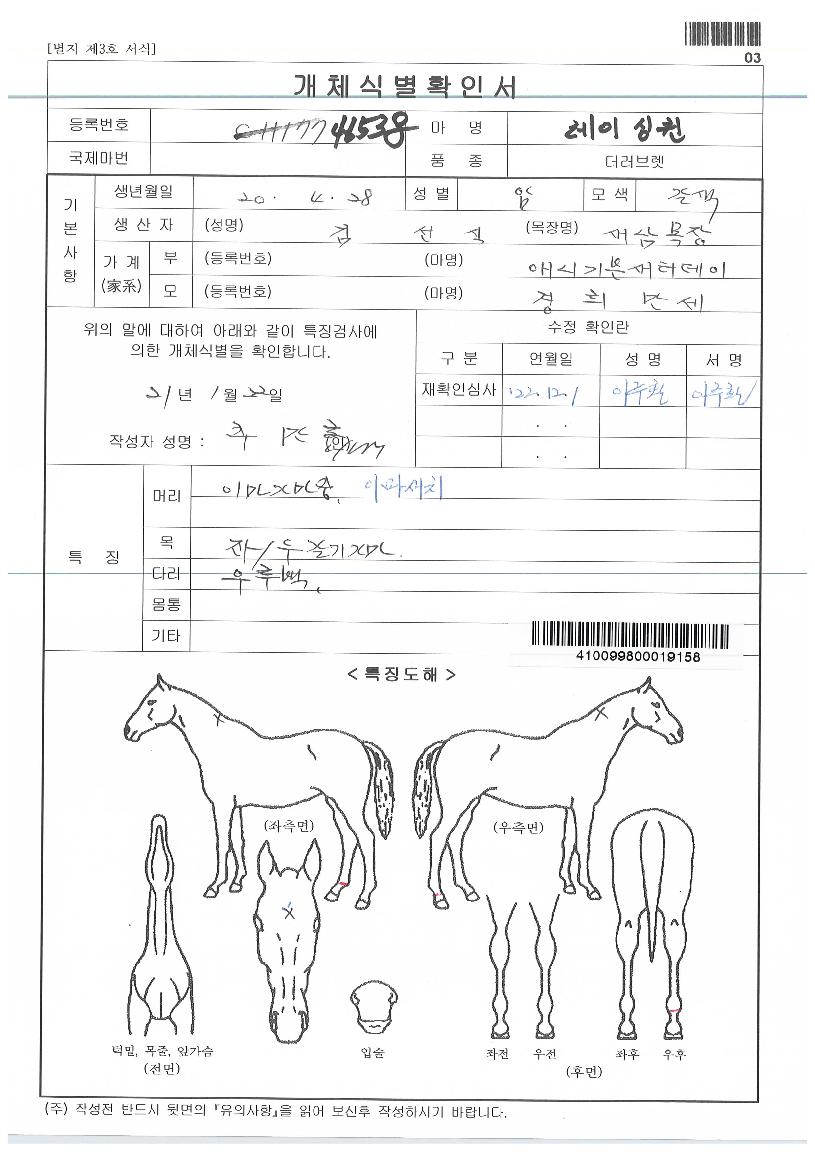 [별지 제3호 서식]
03
개체식별확인서
등록번호 46538 마 명 레이싱퀸
국제마번 품 종 더러브렛
기본사항 생년월일 20. 4. 28 성 별 암 모 색 갈색
생 산 자 (성명) 김 선 (목장명) 목장
가 계 (家系) 부 (등록번호) (마명) 애시기본머터데이
모 (등록번호) (마명) 경 희 만 세
위의 말에 대하여 아래와 같이 특징검사에
의한 개체식별을 확인합니다.
21년 1월 22일
작성자 성명 :
수정 확인란
구 분 연월일 성 명 서 명
재확인심사 '22.12.1
. .
. .
특 징
머리 이마자마중, 이마새치
목 좌/우 줄기자마.
다리 우후백.
몸통
기타
410099800019158
< 특징도해 >
(좌측면) (우측면)
턱밑, 목줄, 앞가슴
(전면)
입술
좌전 우전 좌후 우후
(후면)
(주) 작성전 반드시 뒷면의 『유의사항』을 읽어 보신후 작성하시기 바랍니다.